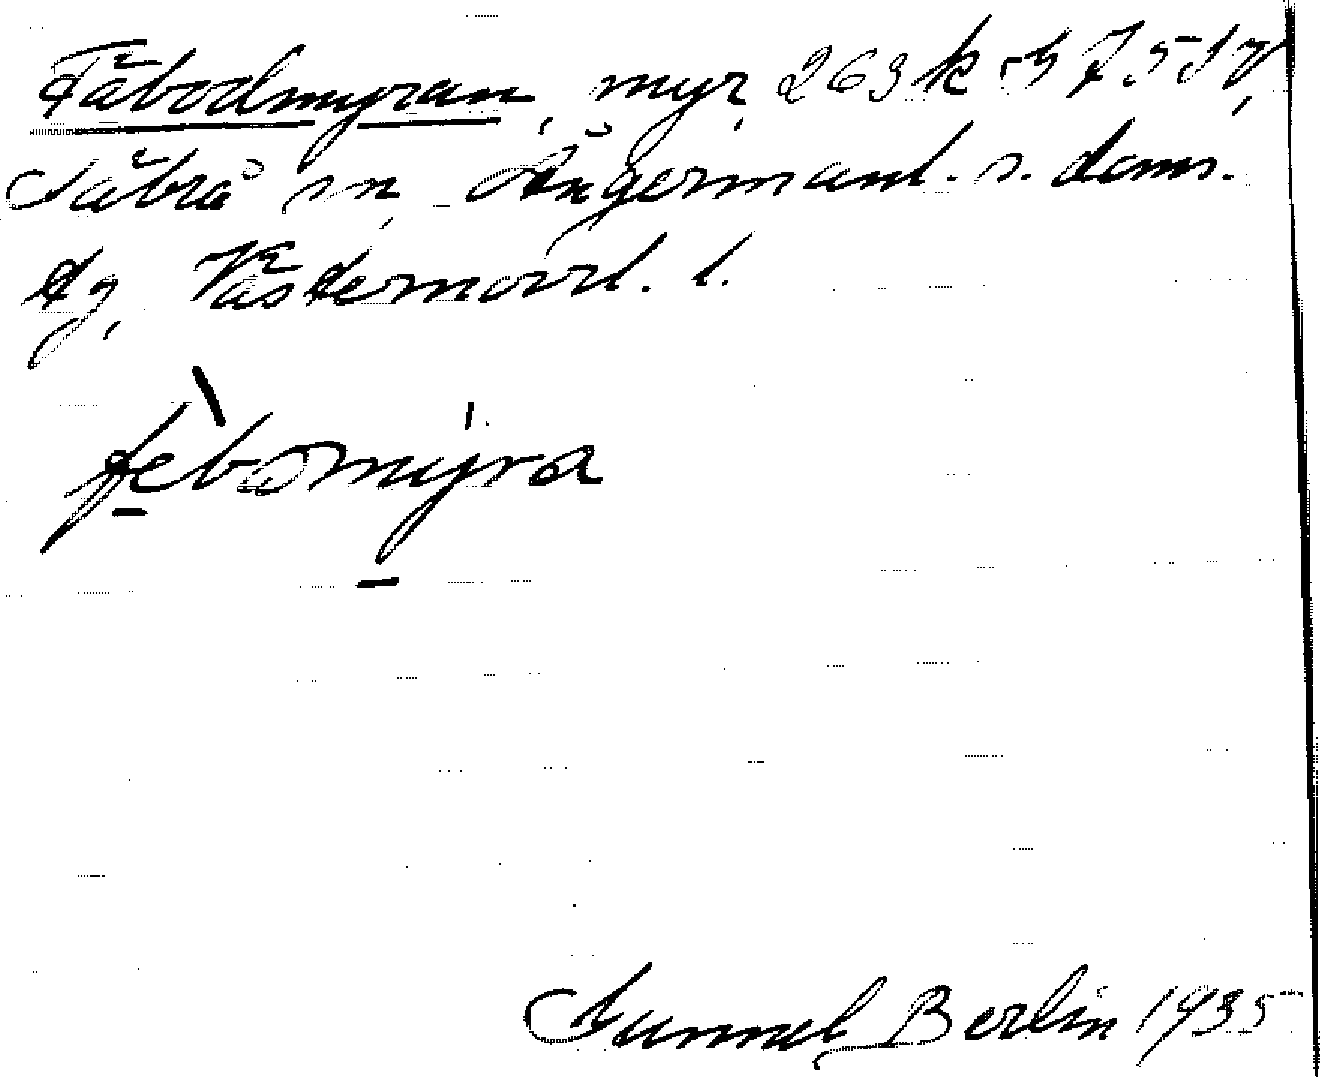 Fäbodmyran, myr, 263 k 57 5 d y,
Säbrå sn, Ångermanl. s. doms.
tg, Västernorrl. l.
fèbomyra
Gunnel Berlin 1935